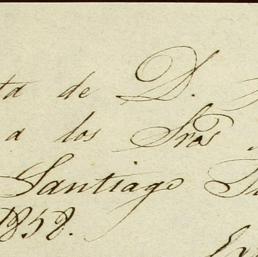 ta de D.
a los Sres
Santiago
1858.